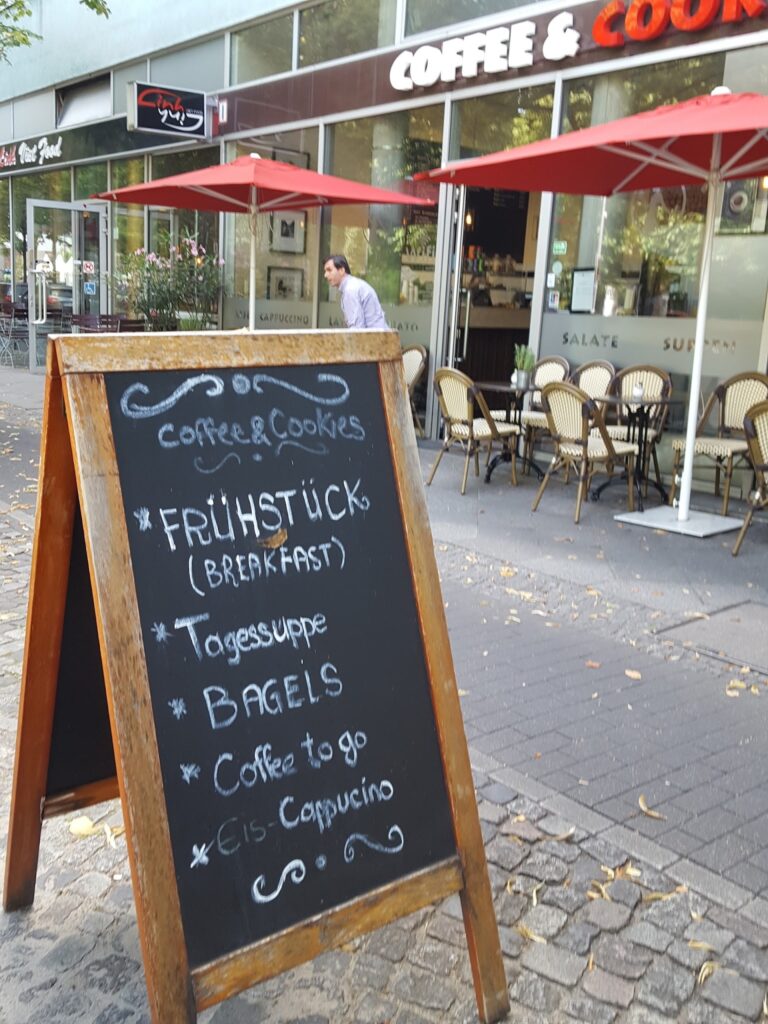 COFFEE & COOK
Linh
Viet Food
CAPPUCCINO
SALATE SUPPEN
coffee & Cookies
* FRÜHSTÜCK
(BREAKFAST)
* Tagessuppe
* BAGELS
* Coffee to go
* Eis-Cappucino